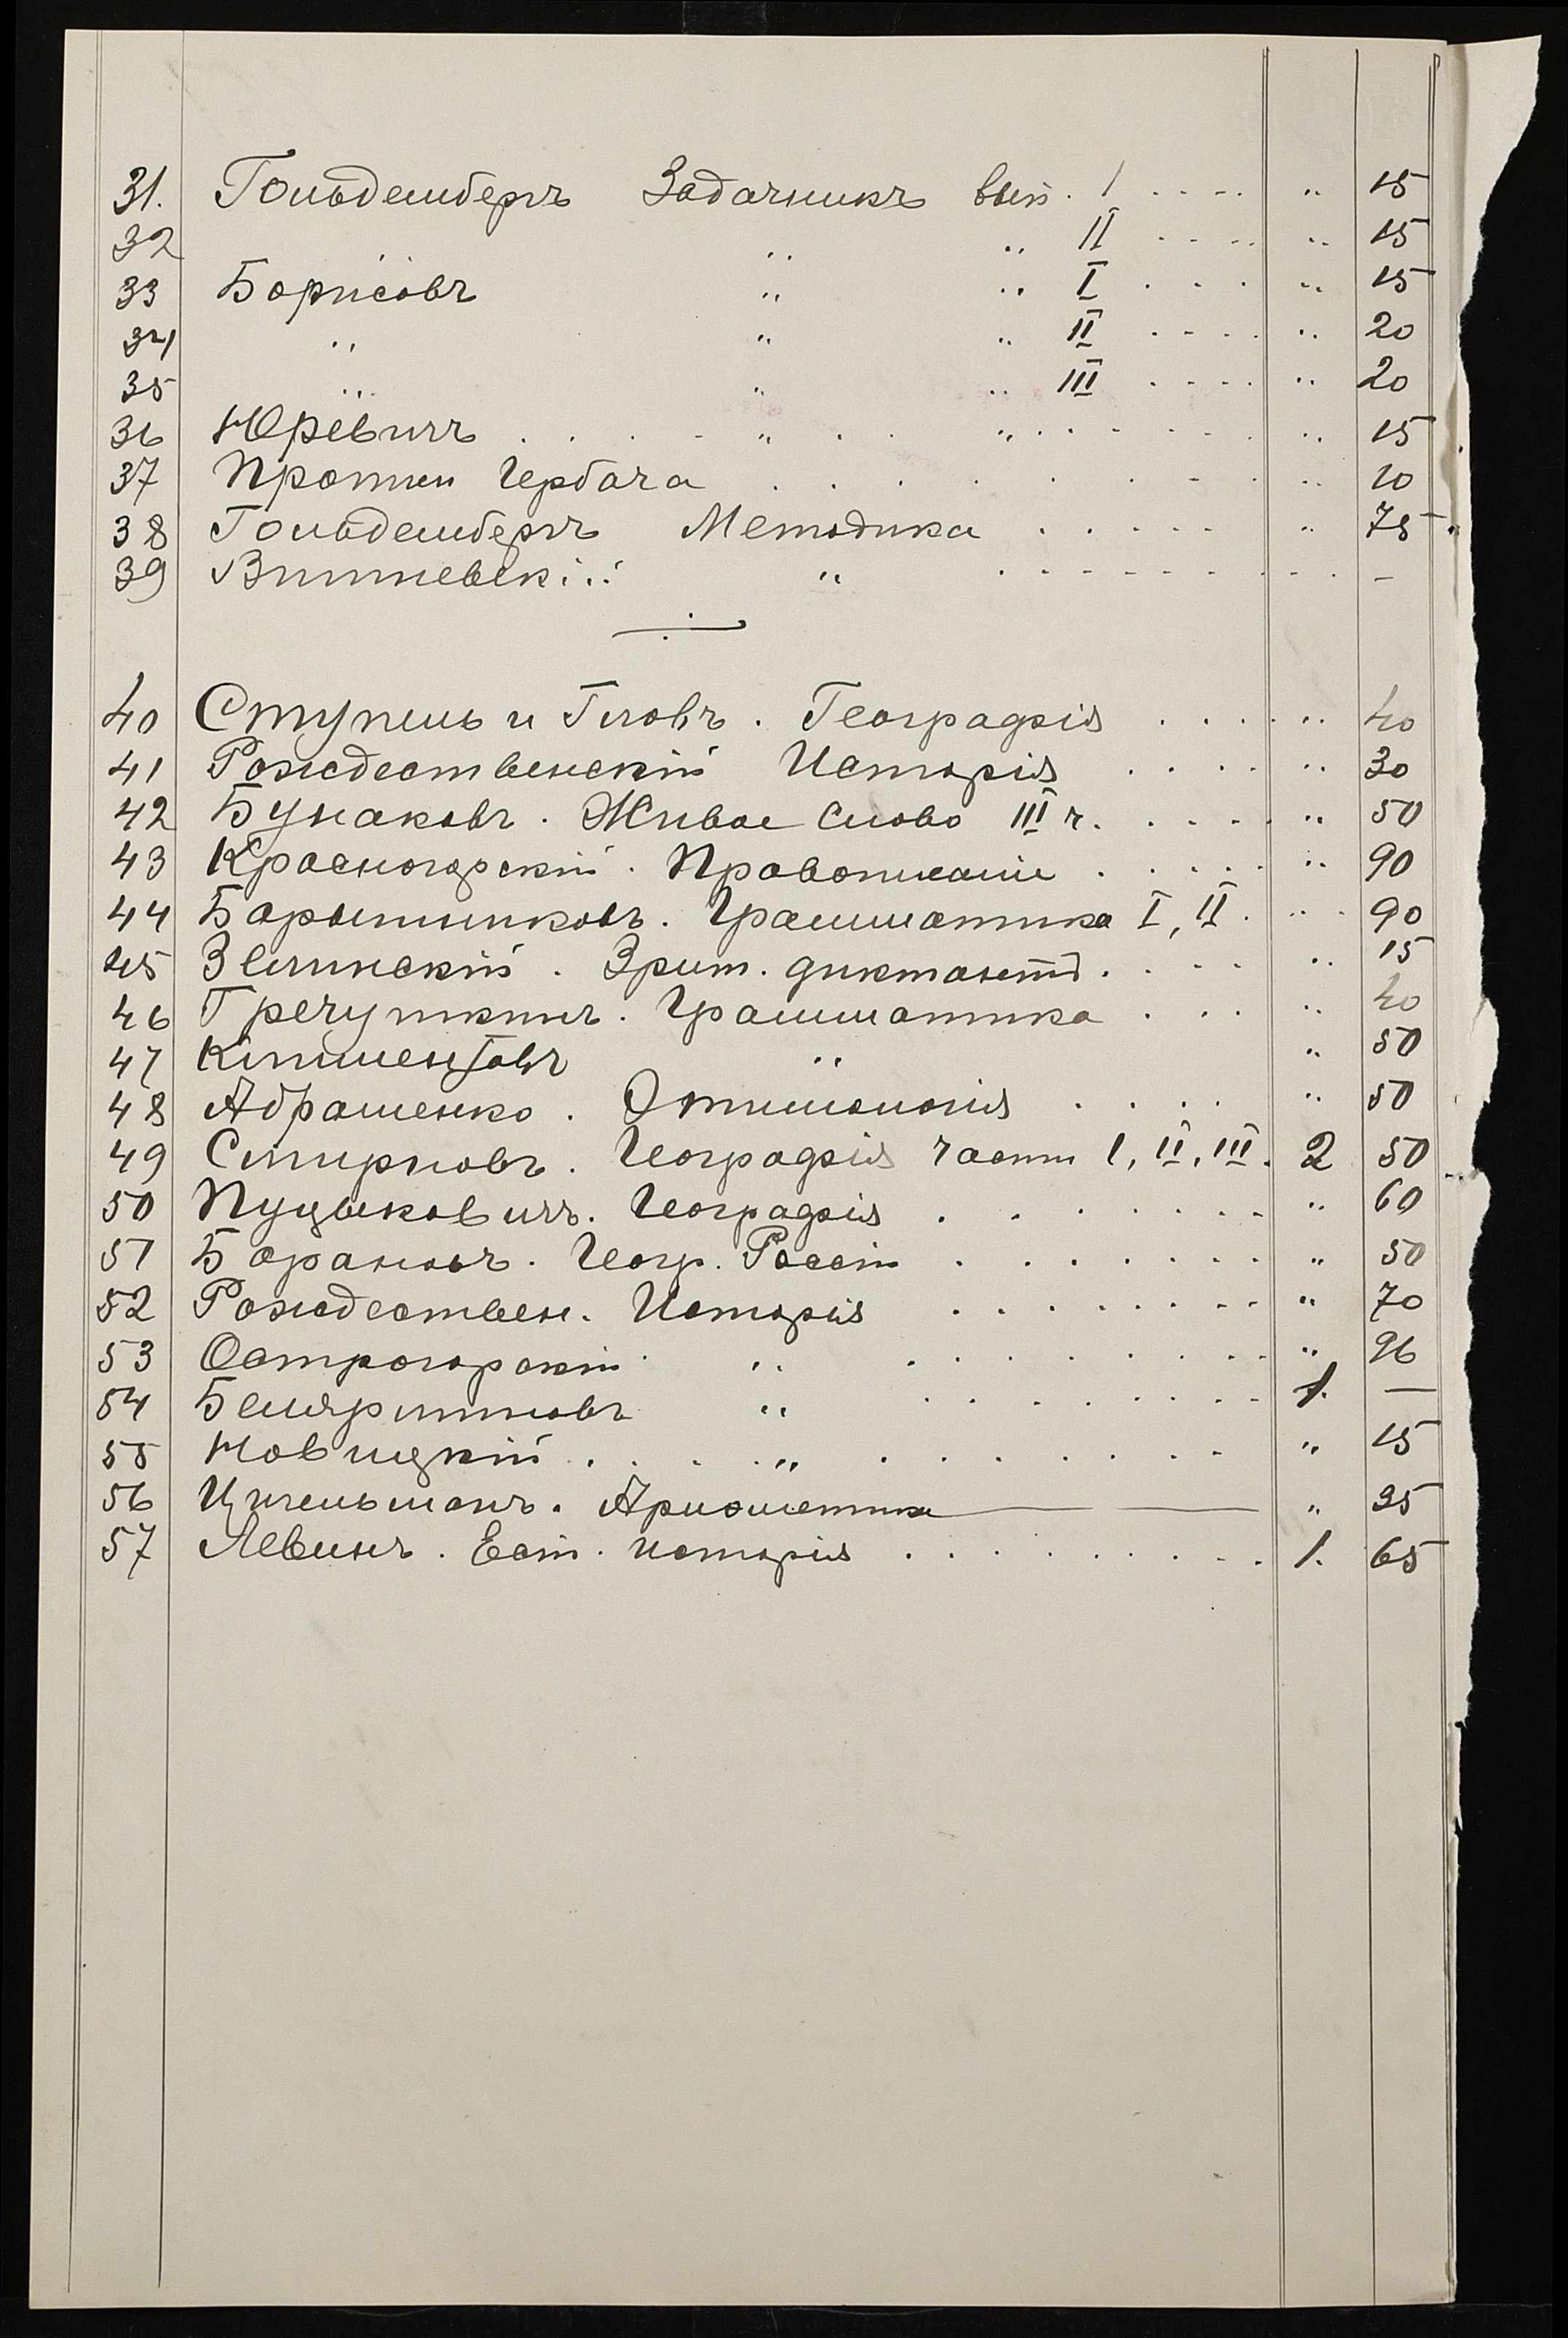 31. Гольденбергъ Задачникъ вып. I . . . . „ 15
32 „ „ „ II . . . . „ 15
33 Борисовъ „ „ I . . . . „ 15
34 „ „ „ II . . . . „ 20
35 „ „ „ III . . . . „ 20
36 Юревичъ . . . . „ . . „ . . . . . . „ 15
37 Прописи Гербача . . . . . . . . „ 10
38 Гольденбергъ Методика . . . . . „ 75
39 Вишневскій „ . . . . . . . . . –
40 Ступель и Гловъ . Географія . . . . „ 40
41 Рождественскій Исторія . . . . „ 30
42 Бунаковъ . Живое слово III ч. . . . . „ 50
43 Красногорскій . Правописаніе . . . . . „ 90
44 Барышниковъ . Грамматика I, II . „ 90
45 Зелинскій . Зрит. диктантъ . . . . . „ 15
46 Гречушкинъ . Грамматика . . . „ 40
47 Климентовъ „ „ 50
48 Абраменко . Этимологія . . . . „ 50
49 Смирновъ . Географія части I, II, III. 2 50
50 Пуцыковичъ. Географія . . . . . . . „ 60
51 Барановъ . Геогр. Россіи . . . . . . . „ 50
52 Рождествен. Исторія . . . . . . . . „ 70
53 Острогорскій „ . . . . . . . . . „ 96
54 Беллярминовъ „ . . . . . . . . 1. —
55 Новицкій . . . . „ . . . . . . . „ 15
56 Цигельманъ. Ариѳметика „ 35
57 Левинъ . Ест. исторія . . . . . . . . . 1. 65